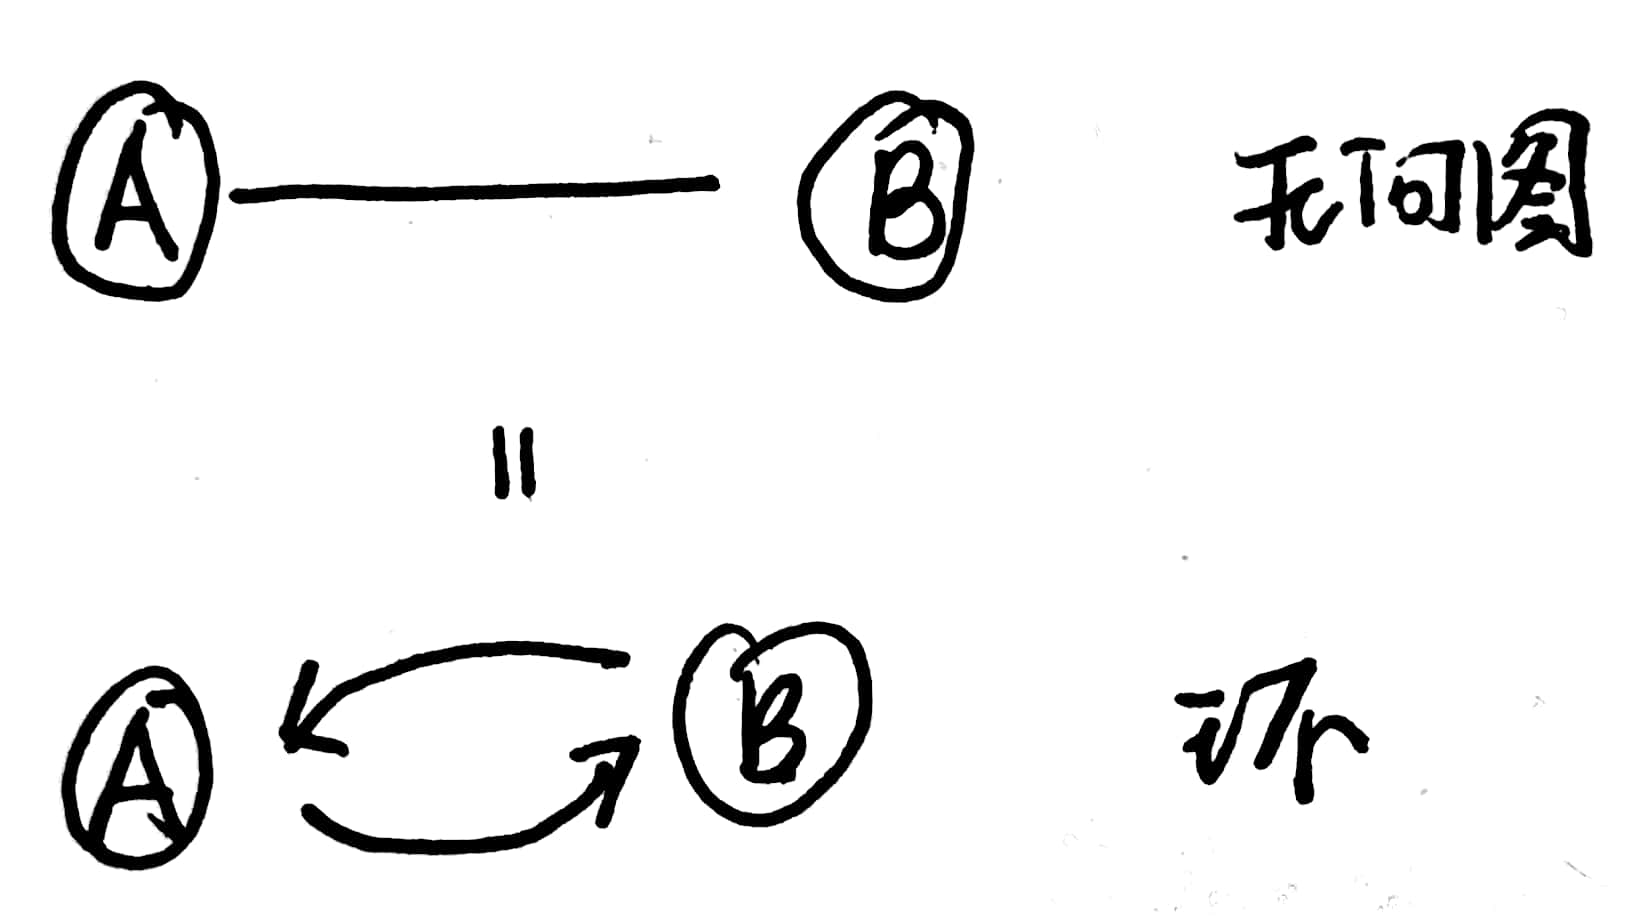 A B 无向图
=
A B 环